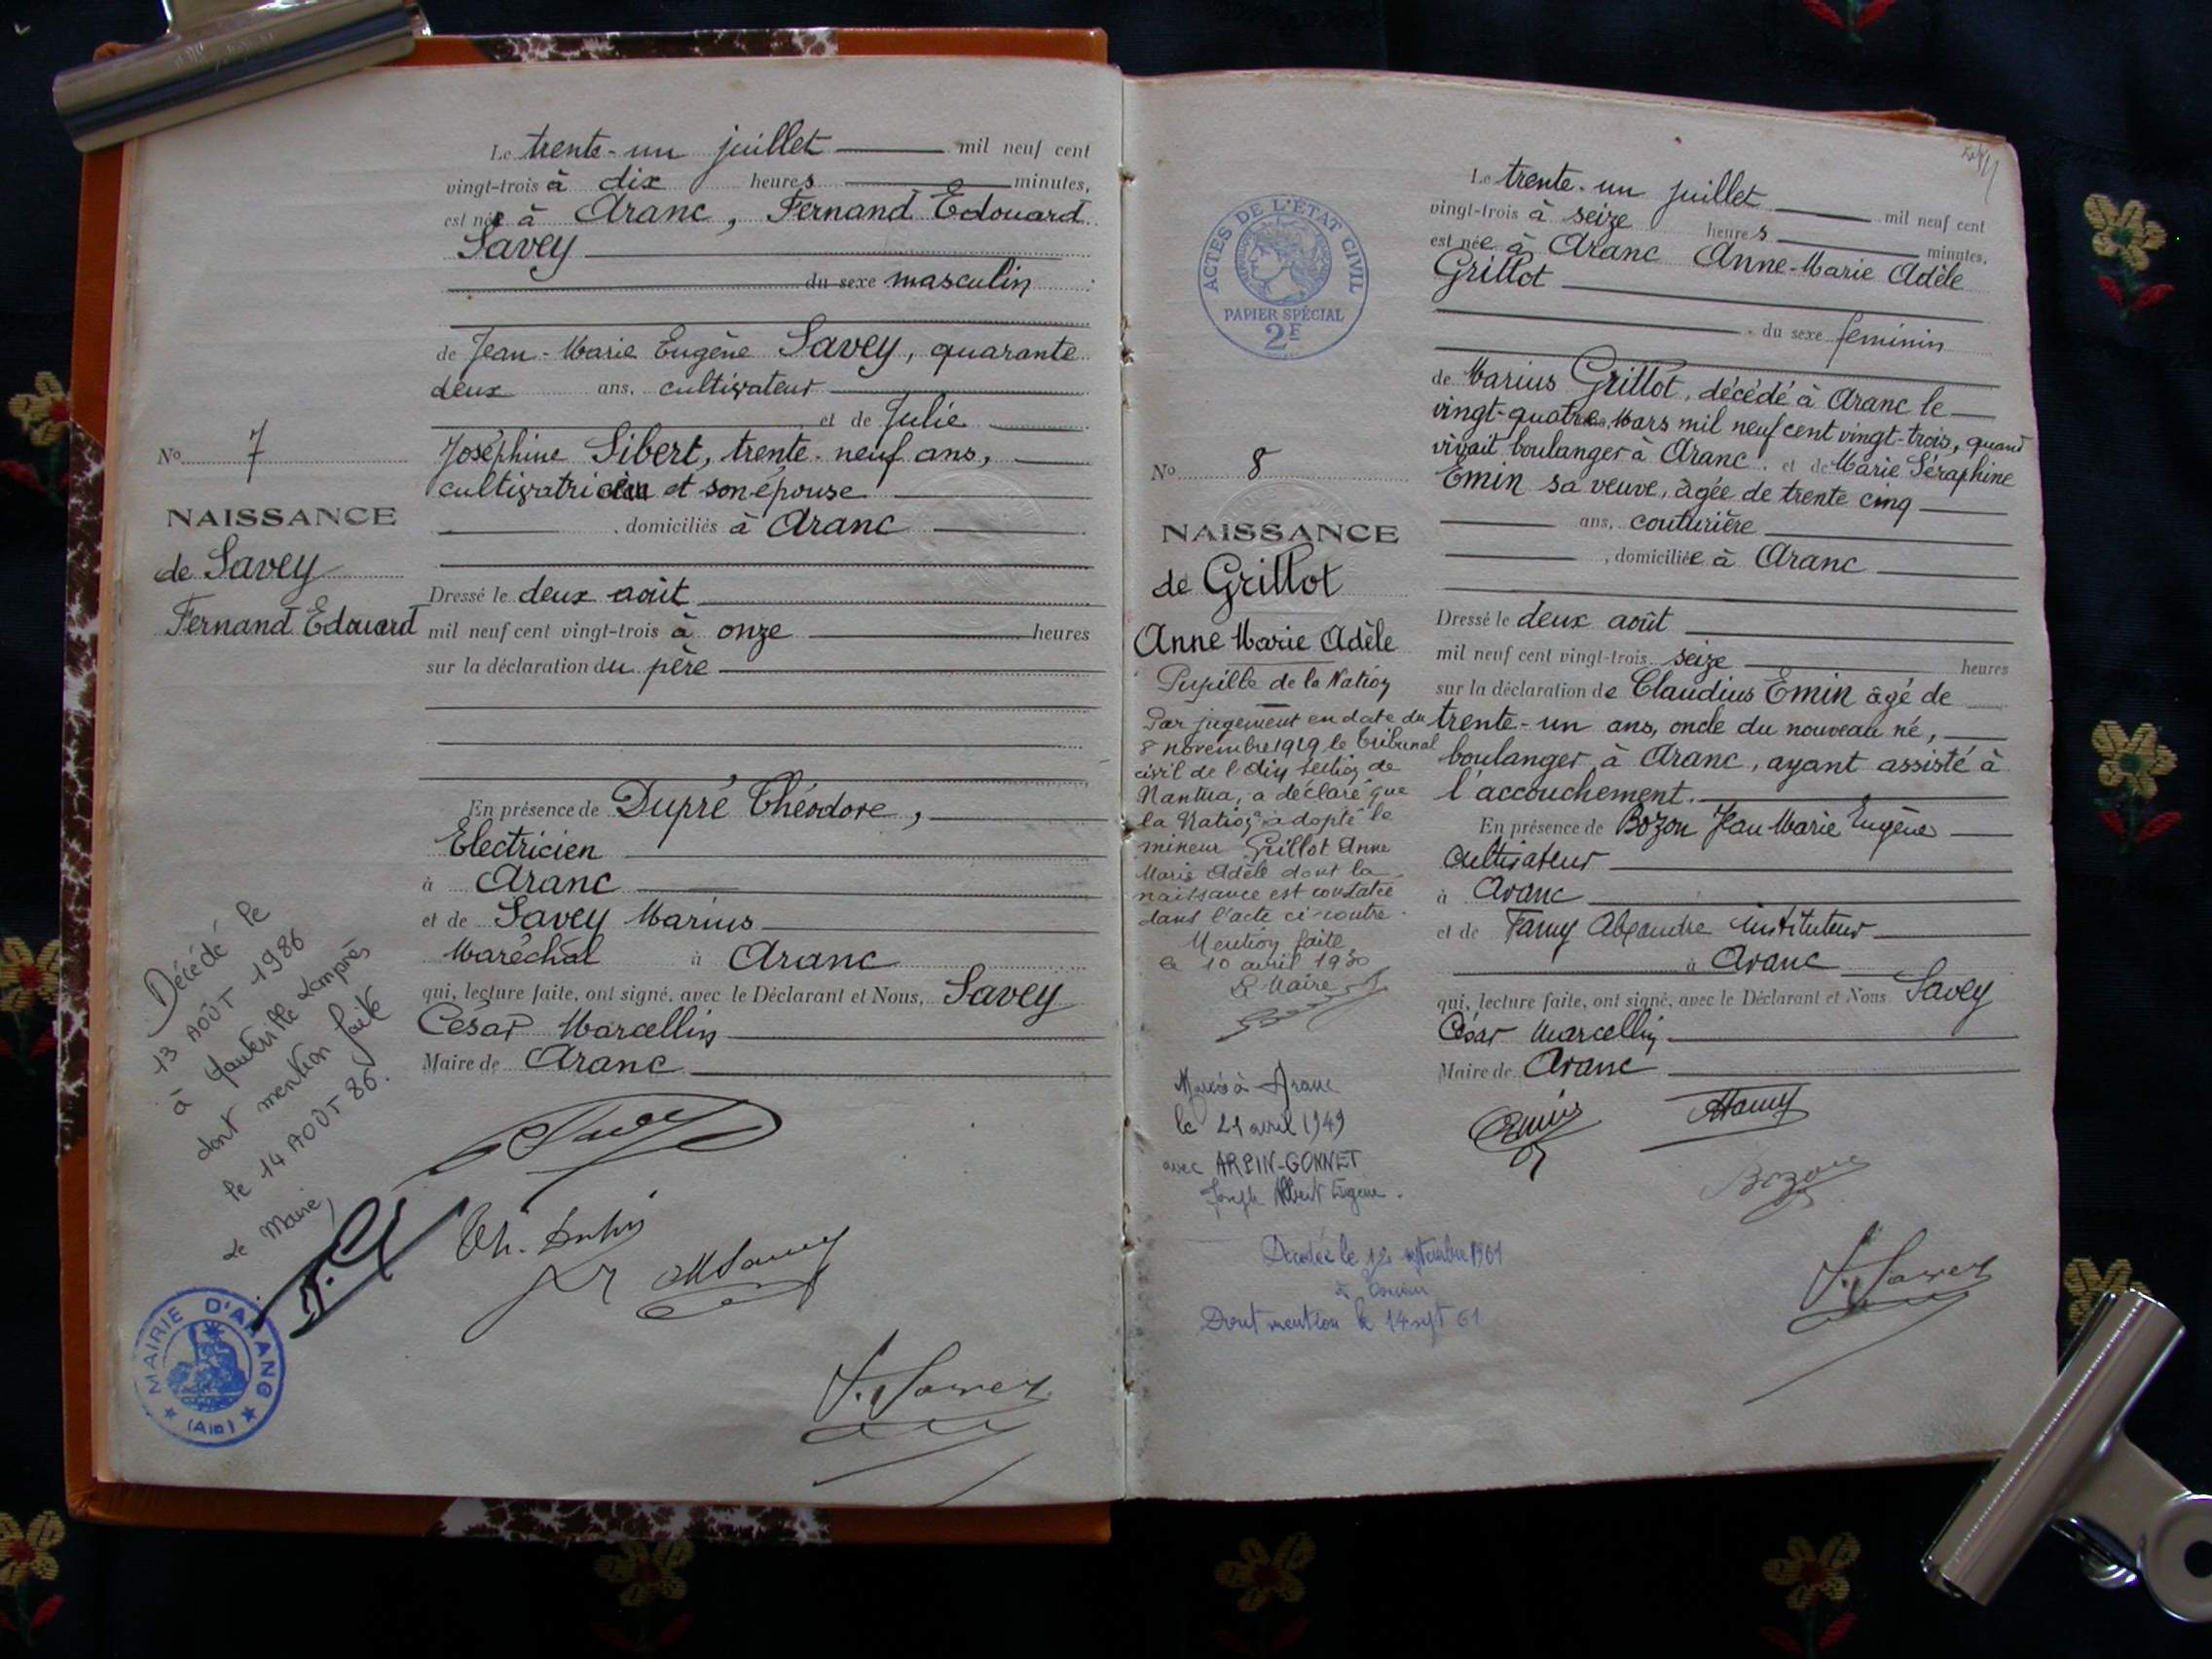 Le trente-un juillet mil neuf cent
vingt-trois à dix heures minutes,
est né à Aranc, Fernand Edouard
Savey
du sexe masculin
de Jean-Marie Eugène Savey, quarante
deux ans, cultivateur
et de Julie
Joséphine Sibert, trente-neuf ans,
et son épouse
domiciliés à Aranc
Dressé le deux août
mil neuf cent vingt-trois à onze heures
sur la déclaration du père
En présence de Dupré Théodore,
Electricien
à Aranc
et de Savey Marius
Maréchal à Aranc
qui, lecture faite, ont signé, avec le Déclarant et Nous, Savey
César Marcellin
Maire de Aranc
No 7
NAISSANCE
de Savey
Fernand Edouard
Décédé le
13 AOÛT 1986
à Hauteville Lompnès
dont mention faite
le 14 AOÛT 86.
Le Maire,
MAIRIE D'ARANC
(Ain)
Le trente-un juillet mil neuf cent
vingt-trois à seize heures minutes,
est née à Aranc Anne-Marie Adèle
Grillot
du sexe feminin
de Marius Grillot, décédé à Aranc le
vingt-quatre Mars mil neuf cent vingt-trois, quand
vivait boulanger à Aranc. et de Marie Séraphine
Emin sa veuve, âgée de trente cinq
ans, couturière
, domiciliée à Aranc
Dressé le deux août
mil neuf cent vingt-trois seize heures
sur la déclaration de Claudius Emin âgé de
trente-un ans, oncle du nouveau né,
boulanger à Aranc, ayant assisté à
l'accouchement.
En présence de Bozon Jean Marie Eugène
Cultivateur
à Aranc
et de Famy Alexandre instituteur
à Aranc
qui, lecture faite, ont signé, avec le Déclarant et Nous Savey
César Marcellin
Maire de Aranc
ACTES DE L'ÉTAT CIVIL
PAPIER SPÉCIAL
2F
No 8
NAISSANCE
de Grillot
Anne Marie Adèle
Pupille de la Nation
Par jugement en date du
8 novembre 1929 le tribunal
civil de l'Ain section de
Nantua, a déclaré que
la Nation adopte le
mineur Grillot Anne
Marie Adèle dont la
naissance est constatée
dans l'acte ci-contre.
Mention faite
le 10 avril 1930
Le Maire
Mariée à Aranc
le 21 avril 1949
avec ARPIN-GONNET
Joseph Albert Eugène.
Décédée le 12 septembre 1961
à
Dont mention le 14 sept 61